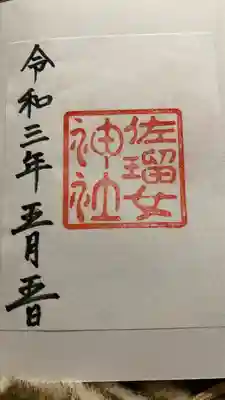 佐瑠女
神社
令和三年五月五日